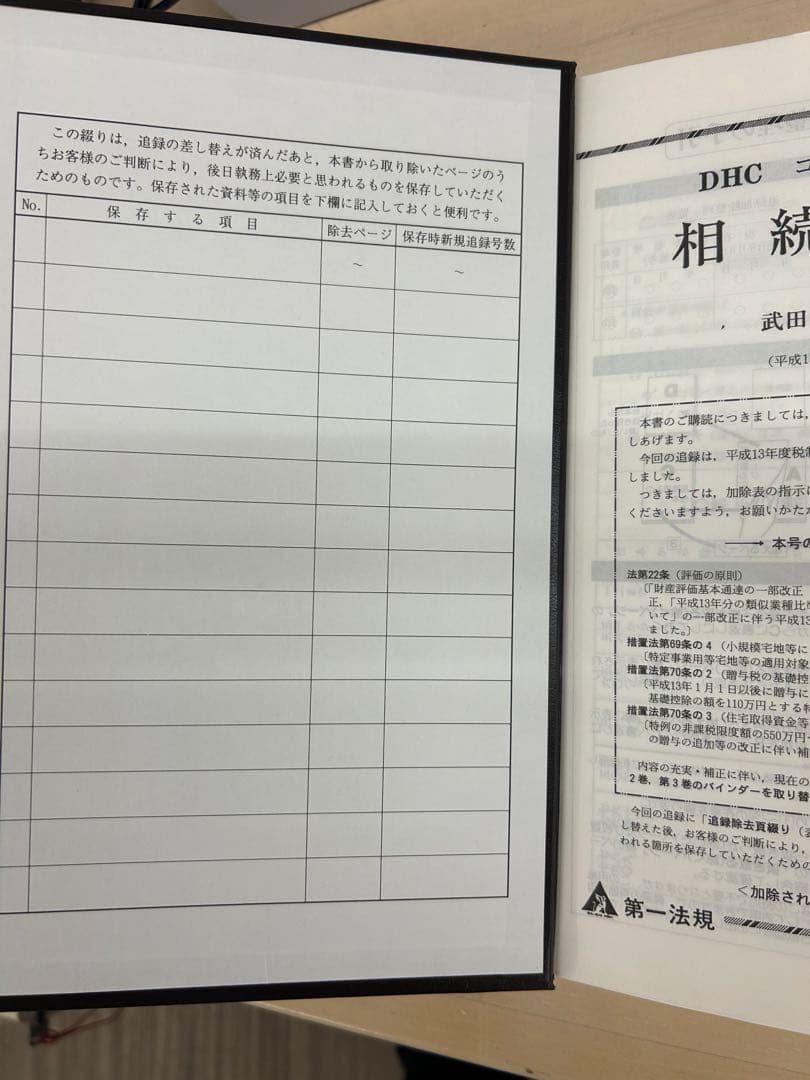 この綴りは，追録の差し替えが済んだあと，本書から取り除いたページのう
ちお客様のご判断により，後日執務上必要と思われるものを保存していただく
ためのものです。保存された資料等の項目を下欄に記入しておくと便利です。
No. 保存する項目 除去ページ 保存時新規追録号数
～ ～
DHC コ
相続
武田
(平成1
本書のご購読につきましては，
しあげます。
今回の追録は，平成13年度税制
しました。
つきましては，加除表の指示に
くださいますよう，お願いかたが
→ 本号の
法第22条（評価の原則）
〔「財産評価基本通達の一部改正
正，「平成13年分の類似業種比
いて」の一部改正に伴う平成13
ました。〕
措置法第69条の4（小規模宅地等に
〔特定事業用等宅地等の適用対象
措置法第70条の2（贈与税の基礎控
〔平成13年1月1日以後に贈与に
基礎控除の額を110万円とする特
措置法第70条の3（住宅取得資金等
〔特例の非課税限度額の550万円
の贈与の追加等の改正に伴い補
内容の充実・補正に伴い，現在の
2巻，第3巻のバインダーを取り替
今回の追録に「追録除去頁綴り（
し替えた後，お客様のご判断により，
われる箇所を保存していただくための
＜加除され
第一法規